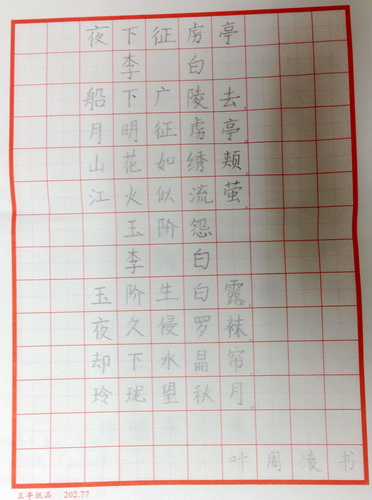 夜下征虏亭
李白
船下广陵去。
月明征虏亭。
山花如绣颊。
江火似流萤。
玉阶怨
李白
玉阶生白露。
夜久侵罗袜。
却下水晶帘
玲珑望秋月。
叶周凌书
202.77